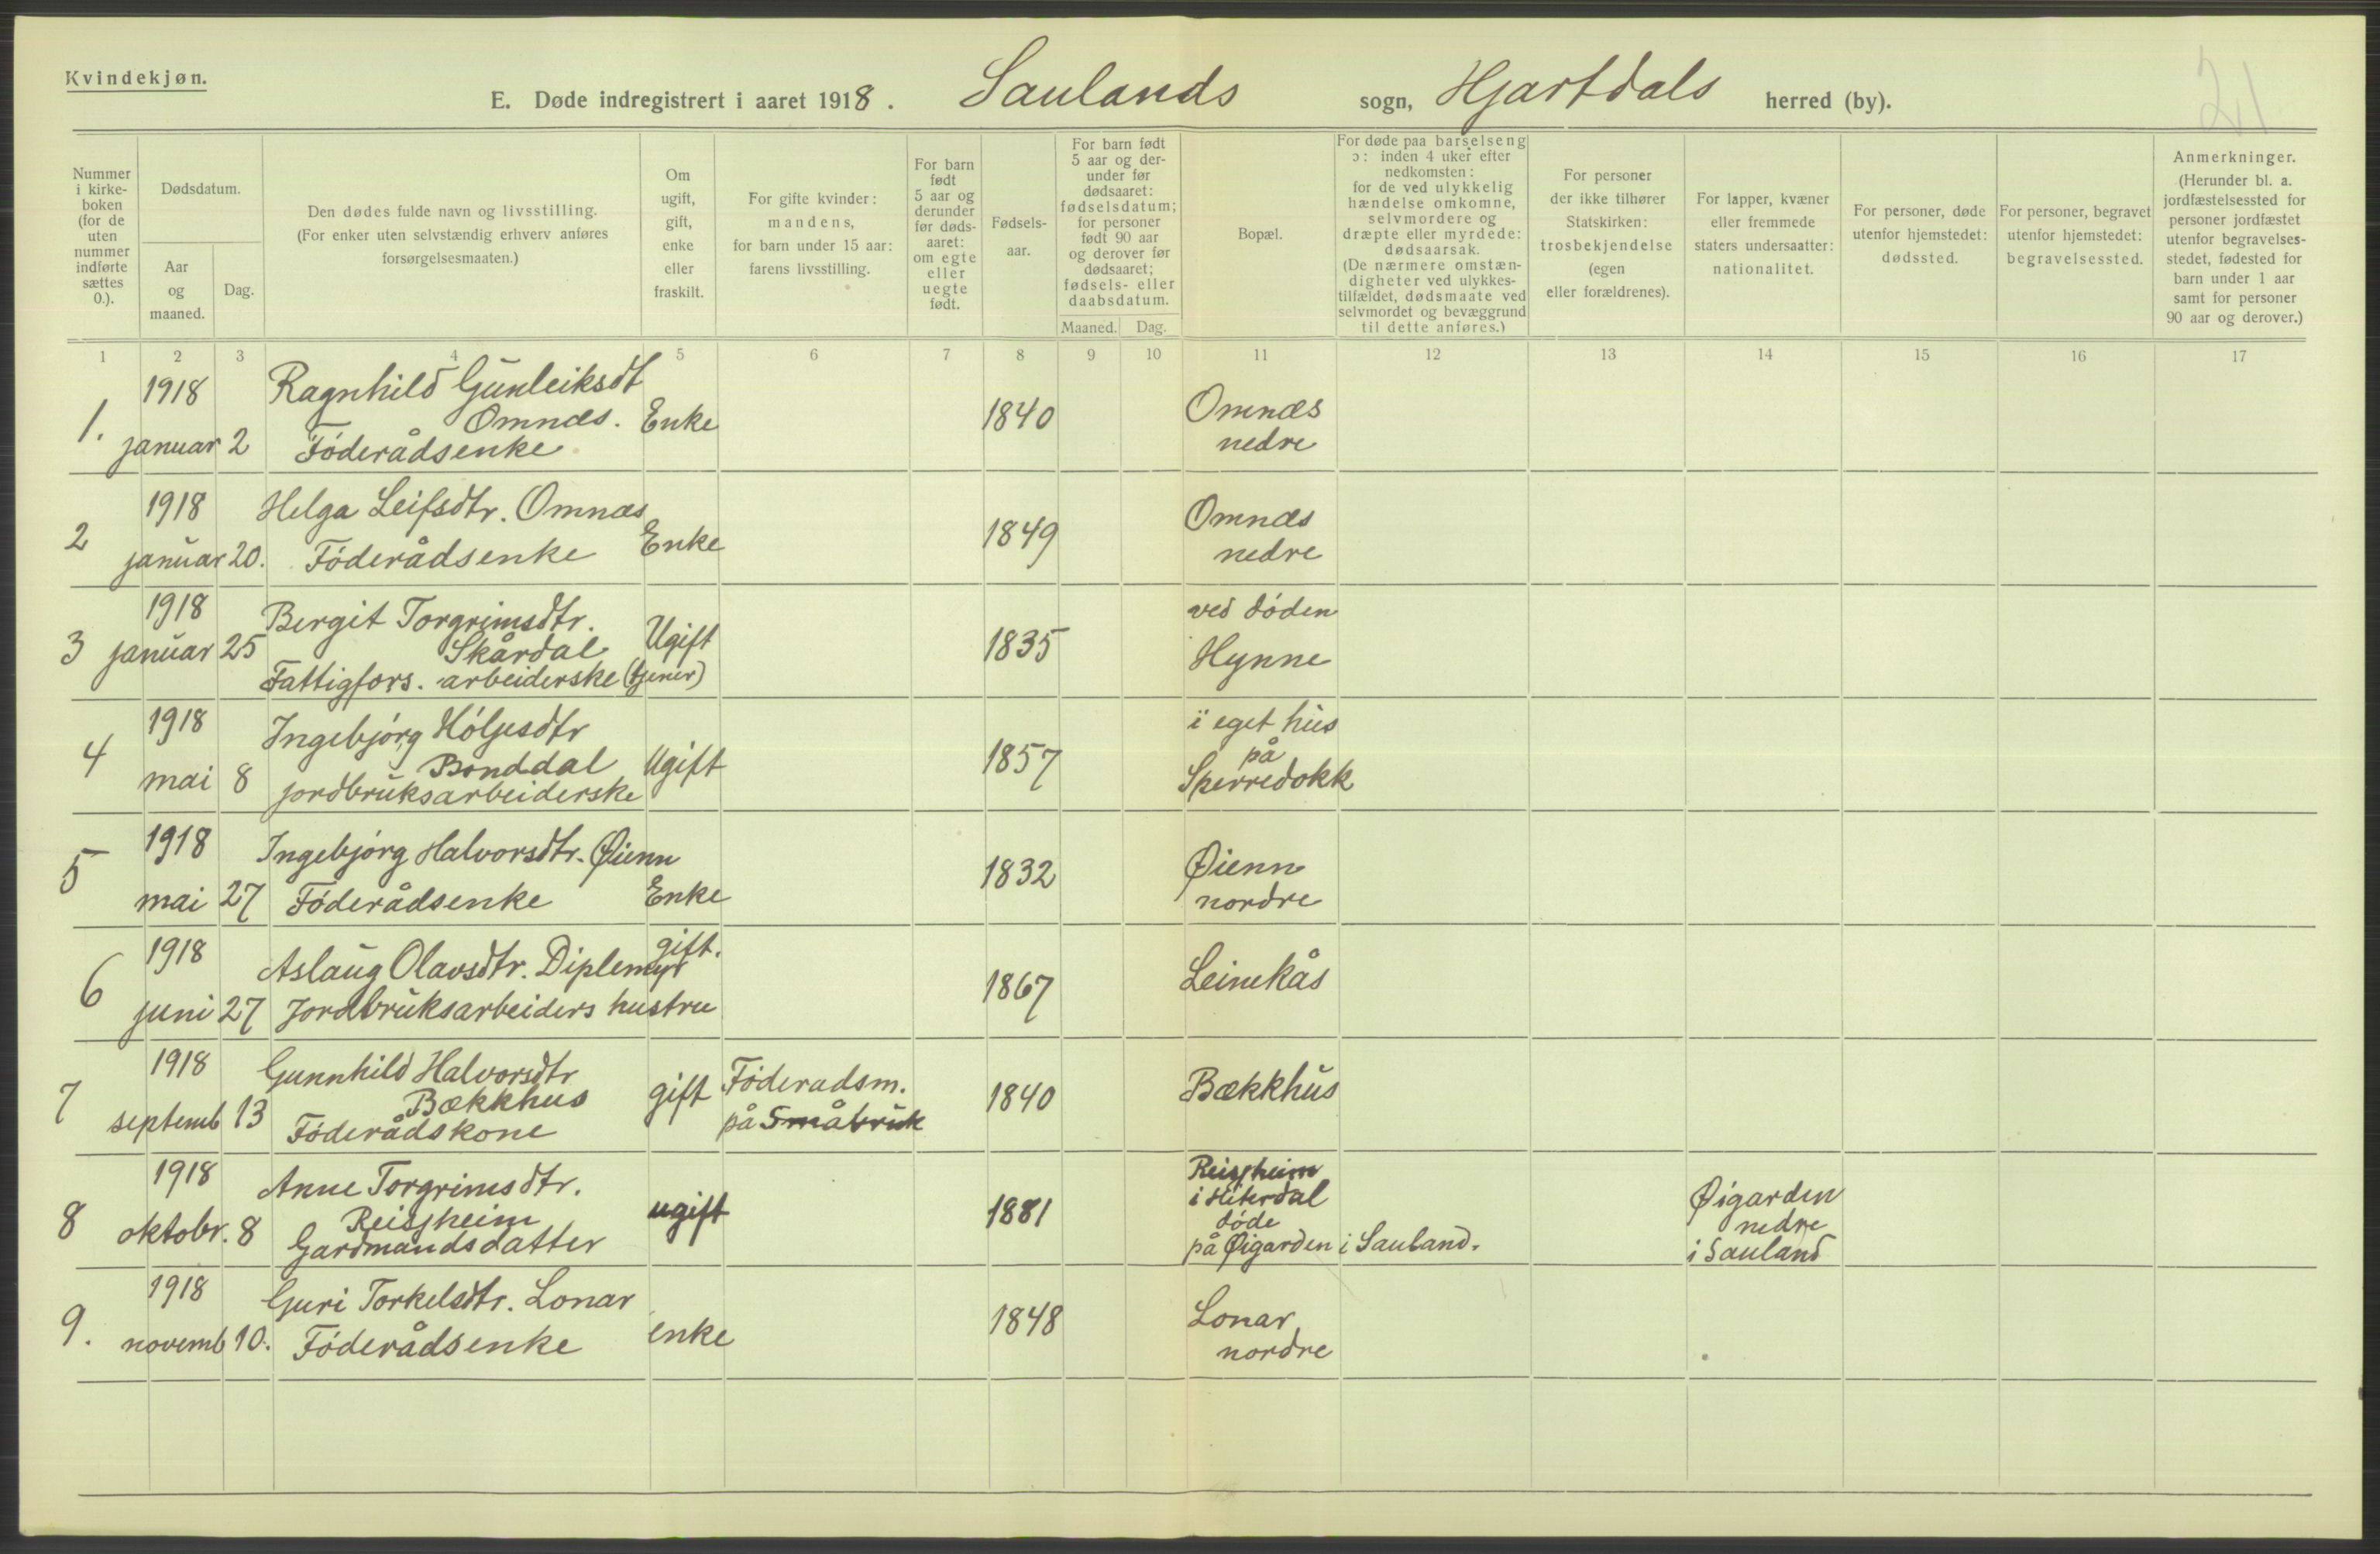 Kvindekjøn.
21
E. Døde indregistrert i aaret 1918. Saulands sogn, Hjartdals herred (by).
Nummer
i kirke-
boken
(for de
uten
nummer
indførte
sættes
0.).
Dødsdatum.
Aar
og
maaned.
Dag.
Den dødes fulde navn og livsstilling.
(For enker uten selvstændig erhverv anføres
forsørgelsesmaaten.)
Om
ugift,
gift,
enke
eller
fraskilt.
For gifte kvinder:
mandens,
for barn under 15 aar:
farens livsstilling.
For barn
født
5 aar og
derunder
før døds-
aaret:
om egte
eller
uegte
født.
Fødsels-
aar.
For barn født
5 aar og der-
under før
dødsaaret:
fødselsdatum;
for personer
født 90 aar
og derover før
dødsaaret;
fødsels- eller
daabsdatum.
Maaned. Dag.
Bopæl.
For døde paa barselseng
ɔ: inden 4 uker efter
nedkomsten:
for de ved ulykkelig
hændelse omkomne,
selvmordere og
dræpte eller myrdede:
dødsaarsak.
(De nærmere omstæn-
digheter ved ulykkes-
tilfældet, dødsmaate ved
selvmordet og bevæggrund
til dette anføres.)
For personer
der ikke tilhører
Statskirken:
trosbekjendelse
(egen
eller forældrenes).
For lapper, kvæner
eller fremmede
staters undersaatter:
nationalitet.
For personer, døde
utenfor hjemstedet:
dødssted.
For personer, begravet
utenfor hjemstedet:
begravelsessted.
Anmerkninger.
(Herunder bl. a.
jordfæstelsessted for
personer jordfæstet
utenfor begravelses-
stedet, fødested for
barn under 1 aar
samt for personer
90 aar og derover.)
1 2 3 4 5 6 7 8 9 10 11 12 13 14 15 16 17
1. 1918
januar 2
Ragnhild Gunleiksdt
Omnæs.
Föderådsenke
Enke
1840
Omnæs
nedre
2 1918
januar 20.
Helga Leifsdtr. Omnæs
Föderådsenke
Enke
1849
Omnæs
nedre
3 1918
januar 25
Bergit Torgrimsdtr.
Skårdal
Fattigfors. arbeiderske (tjener)
Ugift
1835
ved döden
Hynne
4 1918
mai 8
Ingebjörg Höljesdtr
Bonddal
jordbruksarbeiderske
Ugift
1857
i eget hus
på
Sperredokk
5 1918
mai 27
Ingebjörg Halvorsdtr. Øienn
Föderådsenke
Enke
1832
Øienn
nordre
6 1918
juni 27
Aslaug Olavsdtr. Diplemyr
Jordbruksarbeiders hustru
gift.
1867
Leinekås
7 1918
septemb 13
Gunnhild Halvorsdtr
Bækkhus
Föderådskone
gift
Föderadsm.
på Småbruk
1840
Bækkhus
8 1918
oktobr. 8
Anne Torgrimsdtr.
Reisjheim
Gardmandsdatter
ugift
1881
Reisjheim
i Hiterdal
döde
på Øigarden i Sauland.
Øigarden
nedre
i Sauland
9. 1918
novemb 10.
Guri Torkelsdtr. Lonar
Föderådsenke
enke
1848
Lonar
nordre